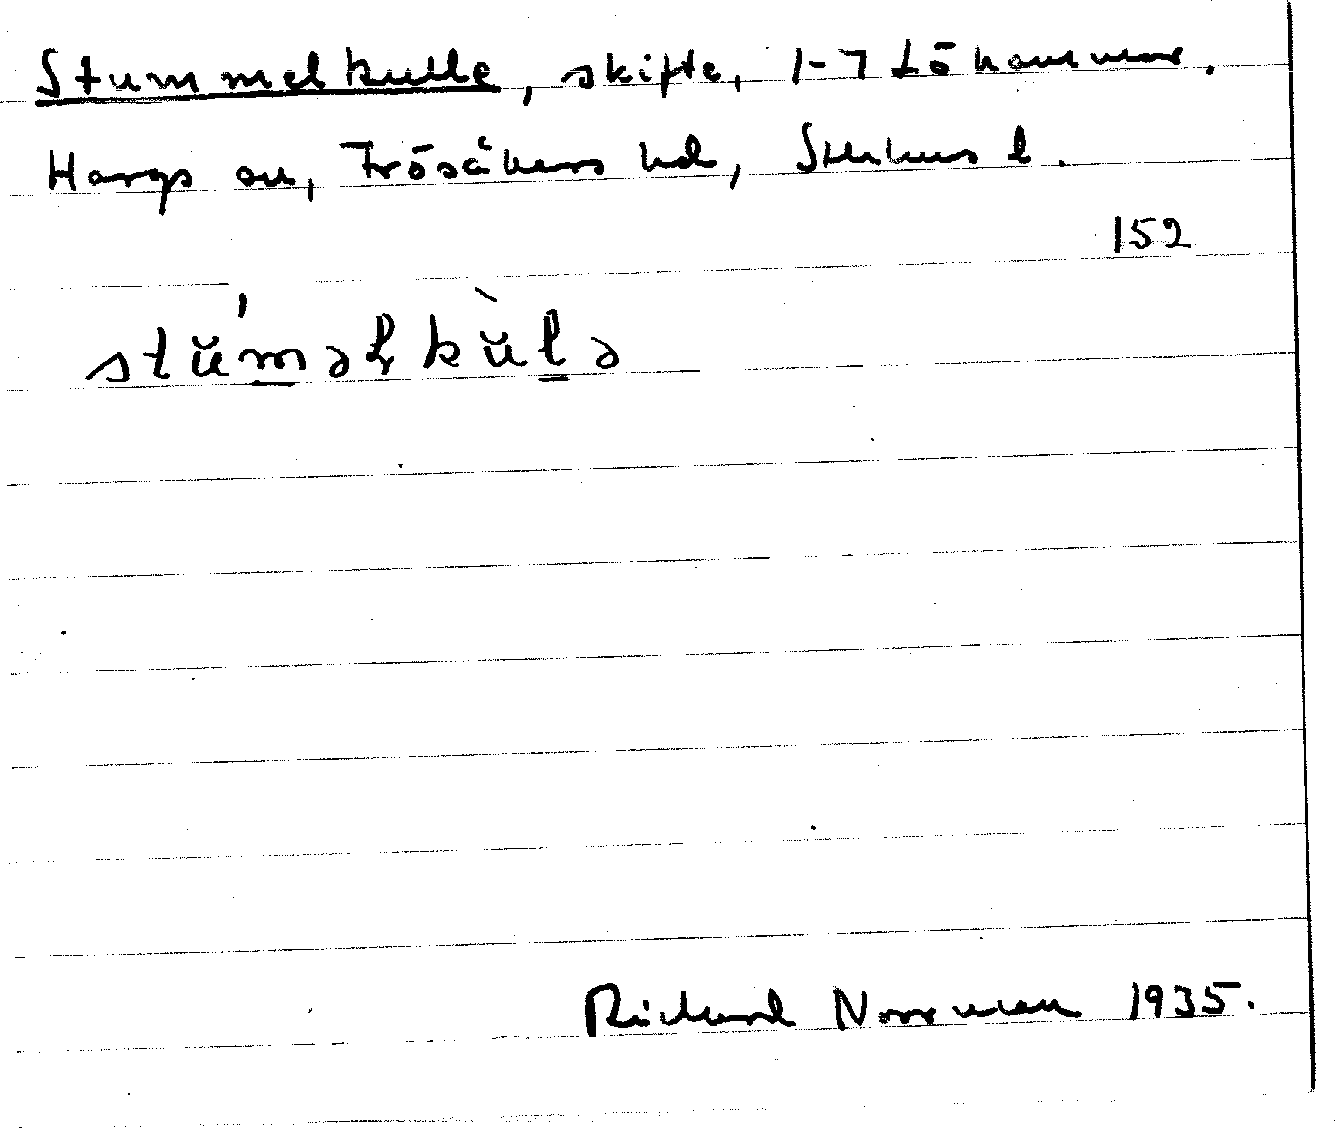 Stummelkulle, skifte, 1-7 Löhammar.
Hargs sn, Frösåkers hd, Sthlms l.
152
stŭ́m̲əlkŭ̀l̲ə
Richard Norrman 1935.